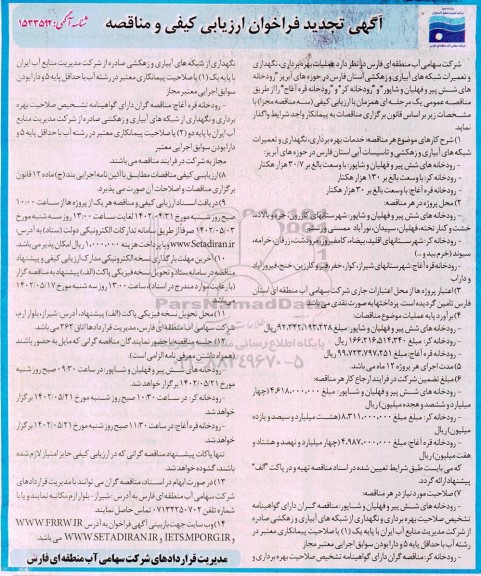 آگهی تجدید فراخوان ارزیابی کیفی و مناقصه
شناسه آگهی: ۱۵۳۳۵۹۲
شرکت سهامی آب منطقه ای فارس در نظر دارد عملیات بهره برداری، نگهداری
و تعمیرات شبکه های آبیاری و زهکشی استان فارس در حوزه های آبریز "رودخانه
های شش پیر و فهلیان و شاپور" و "رودخانه کر" و "رودخانه قره آغاج" را از طریق
مناقصه عمومی یک مرحله ای همزمان با ارزیابی کیفی (سه مناقصه مجزا) با
مشخصات زیر بر اساس قانون برگزاری مناقصات به پیمانکار واجد شرایط واگذار
نماید
۱) شرح کارهای موضوع هر مناقصه: خدمات بهره برداری، نگهداری و تعمیرات
شبکه های آبیاری و زهکشی و تاسیسات آبی استان فارس در حوزه های آبریز:
- رودخانه های شش پیر و فهلیان و شاپور: با وسعت بالغ بر ۳۰/۷ هزار هکتار
- رودخانه کر: با وسعت بالغ بر ۱۳۰ هزار هکتار
- رودخانه قره آغاج: با وسعت بالغ بر ۳۰ هزار هکتار
۲) محل پروژه در هر مناقصه:
- رودخانه های شش پیر و فهلیان و شاپور: شهرستانهای کازرون، جره و بالاده،
خشت و کنار تخته، فهلیان، سپیدان، نورآباد ممسنی و رستم
- رودخانه کر: شهرستانهای اقلید، بیضاء، کامفیروز، مرودشت، زرقان، خرامه،
سیوند (خرم بید و ...)
- رودخانه قره آغاج: شهرستانهای شیراز، کوار، خفر، قیر و کارزین، خنج، فیروزآباد
و داراب
۳) اعتبار پروژه ها از محل اعتبارات جاری شرکت سهامی آب منطقه ای استان
فارس تامین گردیده است. پرداختها به صورت نقدی می باشد.
۴) برآورد پایه عملیات موضوع مناقصات:
- رودخانه های شش پیر و فهلیان و شاپور: مبلغ ۹۲،۳۴۲،۱۹۳،۴۲۸ ریال
- رودخانه کر: مبلغ ۱۶۶،۲۱۶،۵۱۴،۳۴۰ ریال
- رودخانه قره آغاج: مبلغ ۹۹،۷۲۳،۷۹۷،۲۵۱ ریال
۵) مدت اجرای هر پروژه ۱۲ ماه می باشد.
۶) مبلغ تضمین شرکت در فرایند ارجاع کار هر مناقصه:
- رودخانه های شش پیر و فهلیان و شاپور: مبلغ ۴،۶۱۸،۰۰۰،۰۰۰ (چهار
میلیارد و ششصد و هجده میلیون) ریال
- رودخانه کر: مبلغ ۸،۳۱۱،۰۰۰،۰۰۰ (هشت میلیارد و سیصد و یازده
میلیون) ریال
- رودخانه قره آغاج: مبلغ ۴،۹۸۷،۰۰۰،۰۰۰ (چهار میلیارد و نهصد و هشتاد و
هفت میلیون) ریال
که می بایست طبق شرایط تعیین شده در اسناد مناقصه تهیه و در پاکت "الف"
پیشنهاد ارائه گردد.
۷) صلاحیت مورد نیاز در هر مناقصه:
- رودخانه های شش پیر و فهلیان و شاپور: مناقصه گران دارای گواهینامه
تشخیص صلاحیت بهره برداری و نگهداری از شبکه های آبیاری و زهکشی صادره
از شرکت مدیریت منابع آب ایران با پایه یک (۱) یا صلاحیت پیمانکاری معتبر در
رشته آب با حداقل پایه ۵ و دارا بودن سوابق اجرایی معتبر مجاز
- رودخانه کر: مناقصه گران دارای گواهینامه تشخیص صلاحیت بهره برداری و
نگهداری از شبکه های آبیاری و زهکشی صادره از شرکت مدیریت منابع آب ایران
با پایه یک (۱) یا صلاحیت پیمانکاری معتبر در رشته آب با حداقل پایه ۵ و دارا بودن
سوابق اجرایی معتبر مجاز
- رودخانه قره آغاج: مناقصه گران دارای گواهینامه تشخیص صلاحیت بهره
برداری و نگهداری از شبکه های آبیاری و زهکشی صادره از شرکت مدیریت منابع
آب ایران با پایه دو (۲) یا صلاحیت پیمانکاری معتبر در رشته آب با حداقل پایه ۵ و
دارا بودن سوابق اجرایی معتبر
مجاز به شرکت در فرایند مناقصه می باشند.
۸) ارزیابی کیفی مناقصات مطابق با آئین نامه اجرایی بند (ج) ماده ۱۲ قانون
برگزاری مناقصات و اصلاحات آن صورت می پذیرد
۹) دریافت اسناد ارزیابی کیفی و مناقصه هر یک از پروژه ها از ساعت ۱۰:۰۰
صبح روز شنبه مورخ ۱۴۰۲/۰۴/۳۱ لغایت ساعت ۱۳:۰۰ روز سه شنبه مورخ
۱۴۰۲/۰۵/۰۳ صرفا از طریق سامانه تدارکات الکترونیکی دولت (ستاد) به آدرس:
www.Setadiran.ir و با پرداخت هزینه ۱،۰۰۰،۰۰۰ ریال امکان پذیر می باشد.
۱۰) آخرین مهلت بارگذاری نسخه الکترونیکی مدارک ارزیابی کیفی و پیشنهاد
مناقصه در سامانه ستاد و تحویل نسخه فیزیکی پاکت (الف) پیشنهاد به مناقصه گزار
(با رعایت موارد مندرج در اسناد)، ساعت ۱۳:۰۰ روز سه شنبه مورخ ۱۴۰۲/۰۵/۱۷
می باشد
۱۱) محل تحویل نسخه فیزیکی پاکت (الف) پیشنهاد، آدرس: شیراز، بلوار ارم،
شرکت سهامی آب منطقه ای فارس، مدیریت قراردادها اتاق ۲۶۲ می باشد
۱۲) جلسه مناقصه با حضور نمایندگان مناقصه گرانی که مایل به حضور باشند
(همراه داشتن معرفی نامه الزامی است).
- رودخانه های شش پیر و فهلیان و شاپور: در ساعت ۰۹:۳۰ صبح روز شنبه
مورخ ۱۴۰۲/۰۵/۲۱ برگزار خواهد شد.
- رودخانه کر: در ساعت ۱۰:۳۰ صبح روز شنبه مورخ ۱۴۰۲/۰۵/۲۱ برگزار
خواهد شد.
- رودخانه قره آغاج: در ساعت ۱۱:۳۰ صبح روز شنبه مورخ ۱۴۰۲/۰۵/۲۱ برگزار
خواهد شد.
تنها پاکات پیشنهاد مناقصه گرانی که در ارزیابی کیفی حایز امتیاز لازم شده
باشند، گشوده خواهد شد.
۱۳) در صورت ابهام در اسناد، مناقصه گران می توانند با مدیریت قراردادهای
شرکت سهامی آب منطقه ای فارس به آدرس: شیراز - بلوار ارم مکاتبه نمایند و یا با
شماره تلفن ۰۷۱۳۲۲۵۰۷۰۲ تماس حاصل نمایند.
۱۴) وب سایت جهت بازبینی آگهی فراخوان به آدرس WWW.FRRW.IR
و IETS.MPORG.IR و WWW.SETADIRAN.IR می باشد.
مدیریت قراردادهای شرکت سهامی آب منطقه ای فارس
ParsNamadData
۰۲۱-۸۸۳۴۹۶۷۰-۵